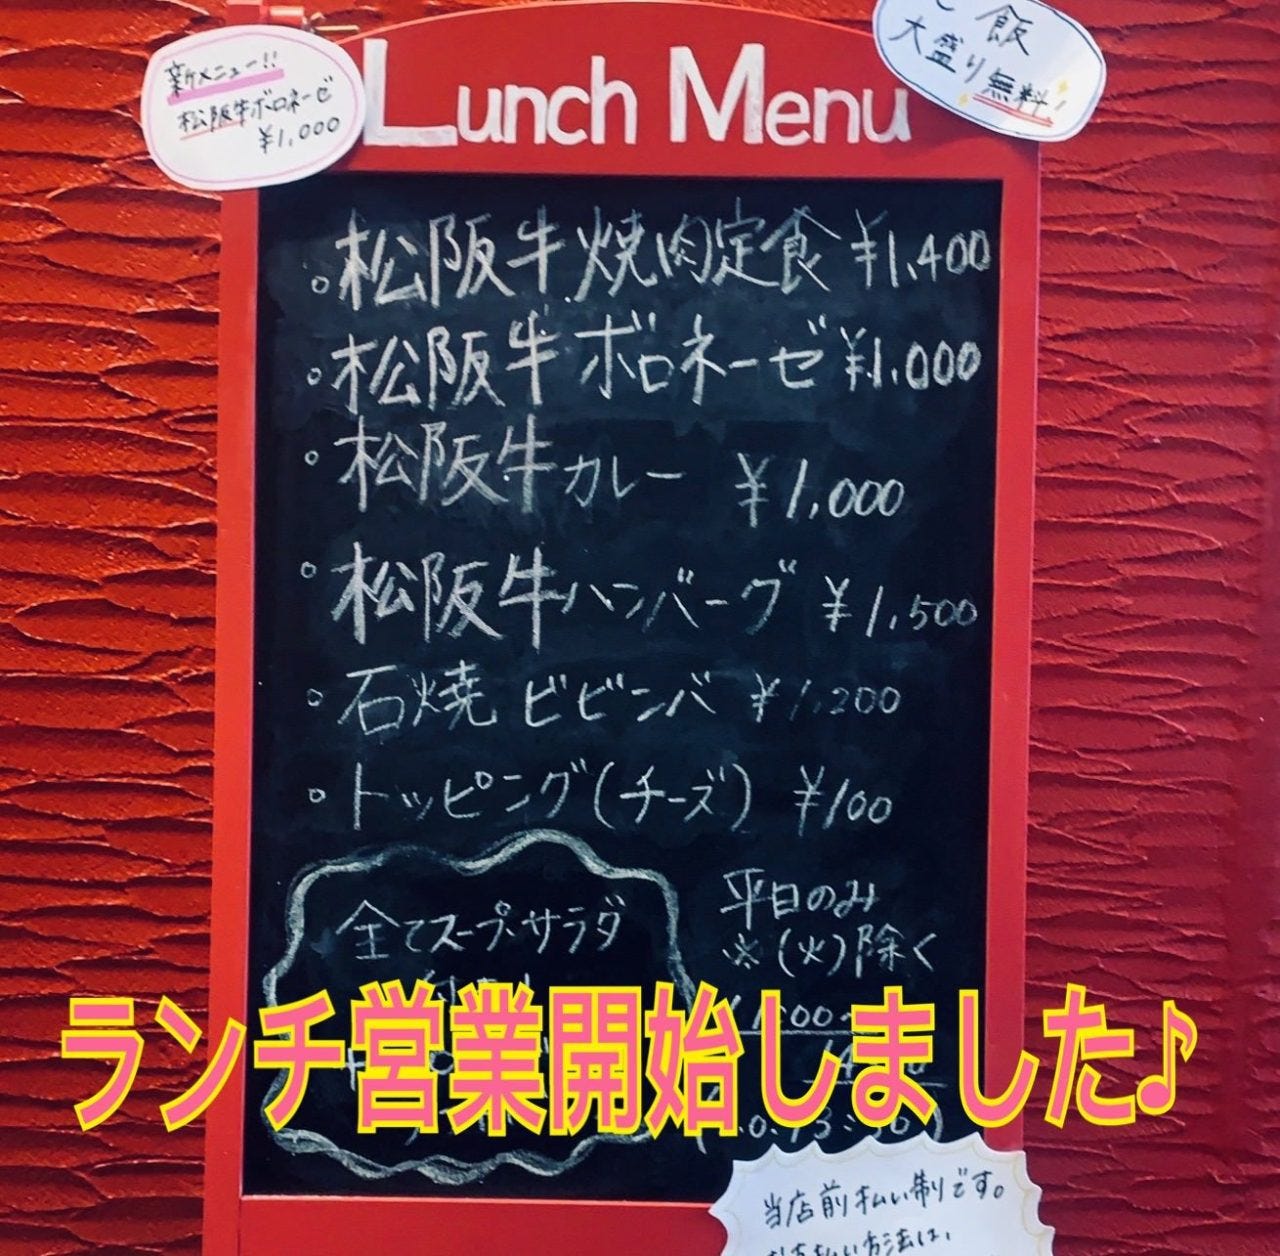 新メニュー!!
松阪牛ボロネーゼ
¥1,000
Lunch Menu
ご飯
大盛り無料!
。松阪牛焼肉定食 ¥1,400
。松阪牛ボロネーゼ ¥1.000
。松阪牛カレー ¥1,000
。松阪牛ハンバーグ ¥1,500
。石焼ビビンバ ¥1,200
。トッピング(チーズ) ¥100
全てスープ・サラダ
平日のみ
※(火)除く
ランチ営業開始しました♪
当店前払い制です。
お支払い方法は、